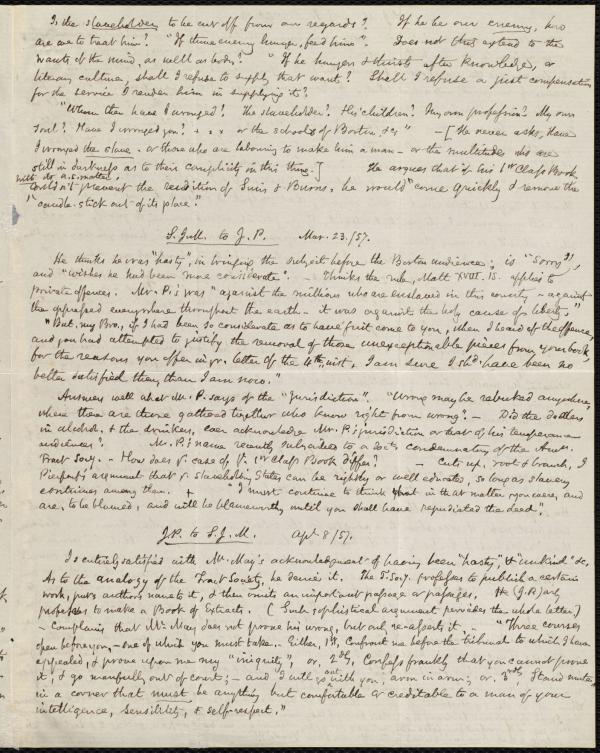 Is the slaveholder to be cut off from our regards? If he be our enemy, how
are we to treat him? "If thine enemy hunger, feed him". Does not this extend to the
wants of the mind, as well as body? "If he hungers & thirsts after knowledge, or
literary culture, shall I refuse to supply that want? Shall I refuse a just compensation
for the service I render him in supplying it?
"Whom then have I wronged? The slaveholder? His children? My own profession? My own
soul? Have I wronged you? + . × or the schools of Boston, &c" — [He never asks, Have
I wronged the slave - or those who are labouring to make him a man - or the multitudes who are
still in darkness as to their complicity in this thing.] He argues that if his 1st Class Book
with its a.s. matter,
couldn't prevent the rendition of Sims & Burns, he would "come quickly & remove the
"candle-stick out of its place."
S.J.M. to J.P. Mar. 23./57.
He thinks he was "hasty", in bringing the subject before the Boston audience; is "sorry",
and "wishes he had been more considerate". - Thinks the rule, Matt XVIII. 15. applies to
private offences. Mr. P.'s was "against the millions who are enslaved in this country - against
the oppressed everywhere throughout the earth - it was against the holy cause of liberty."
"But, my Bro., if I had been so considerate as to have first come to you, when I heard of the offence,
and you had attempted to justify the removal of those unexceptionable pieces from your book,
for the reasons you offer in yr. letter of the 4th inst, I am sure I shd. have been no
better satisfied then, than I am now."
Answers well what Mr. P. says of the "jurisdiction". "Wrong may be rebuked anywhere,
where there are those gathered together who know right from wrong." - Did the dealers
in alcohol, & the drinkers, ever acknowledge Mr. P's jurisdiction or that of his temperance
audiences? Mr. P's name recently subscribed to a doct. condemnatory of the Amn.
Tract Socy. - How does ye case of ye 1st Class Book differ? - Cuts up, root & branch, J
Pierpont's argument that ye slaveholding States can be rightly or well educated, so long as slavery
continues among them. + I must continue to think that in that matter you were, and
are, to be blamed, and will be blameworthy until you shall have repudiated the deed".
J.P. to S.J.M. Apl. 8/57.
Is entirely satisfied with Mr. May's acknowledgment of having been "hasty", & "unkind" &c.
As to the analogy of the Tract Society, he denies it. The T. Socy. professes to publish a certain
work, puts author's name to it, & then omits an important passage or passages. He (J.P.) only
professes to make a Book of Extracts. (Such sophistical argument pervades the whole letter.)
- Complains that Mr. May does not prove his wrong, but only re-asserts it. - "Three courses
open before you, - one of which you must take. - Either, 1st, Confront me before the tribunal to which I have
appealed, & prove upon me my "iniquity", or, 2nd, Confess frankly that you cannot prove
it, & go manfully out of court; - and I will go out with you, arm in arm; or, 3rd, Stand mute
in a corner that must be anything but comfortable or creditable to a man of your
intelligence, sensibility, & self-respect."